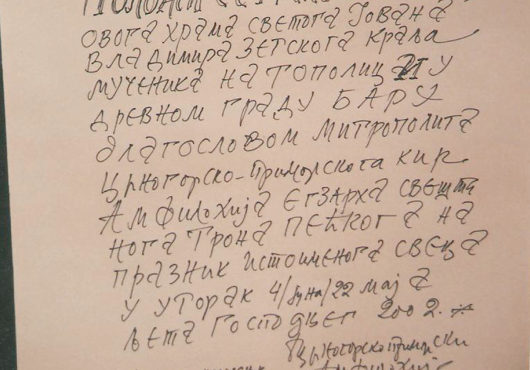 овога храма светога Јована
Владимира Зетског краља
мученика на Тополици у
древном граду БАРУ
благословом Митрополита
Црногорско-Приморскога кир
Амфилохија Егзарха свешта
нога Трона Пећког а на
празник истоименога свеца
у уторак 4/јуна/22 маја
љета Господњег 2002.
Црногорскоприморски